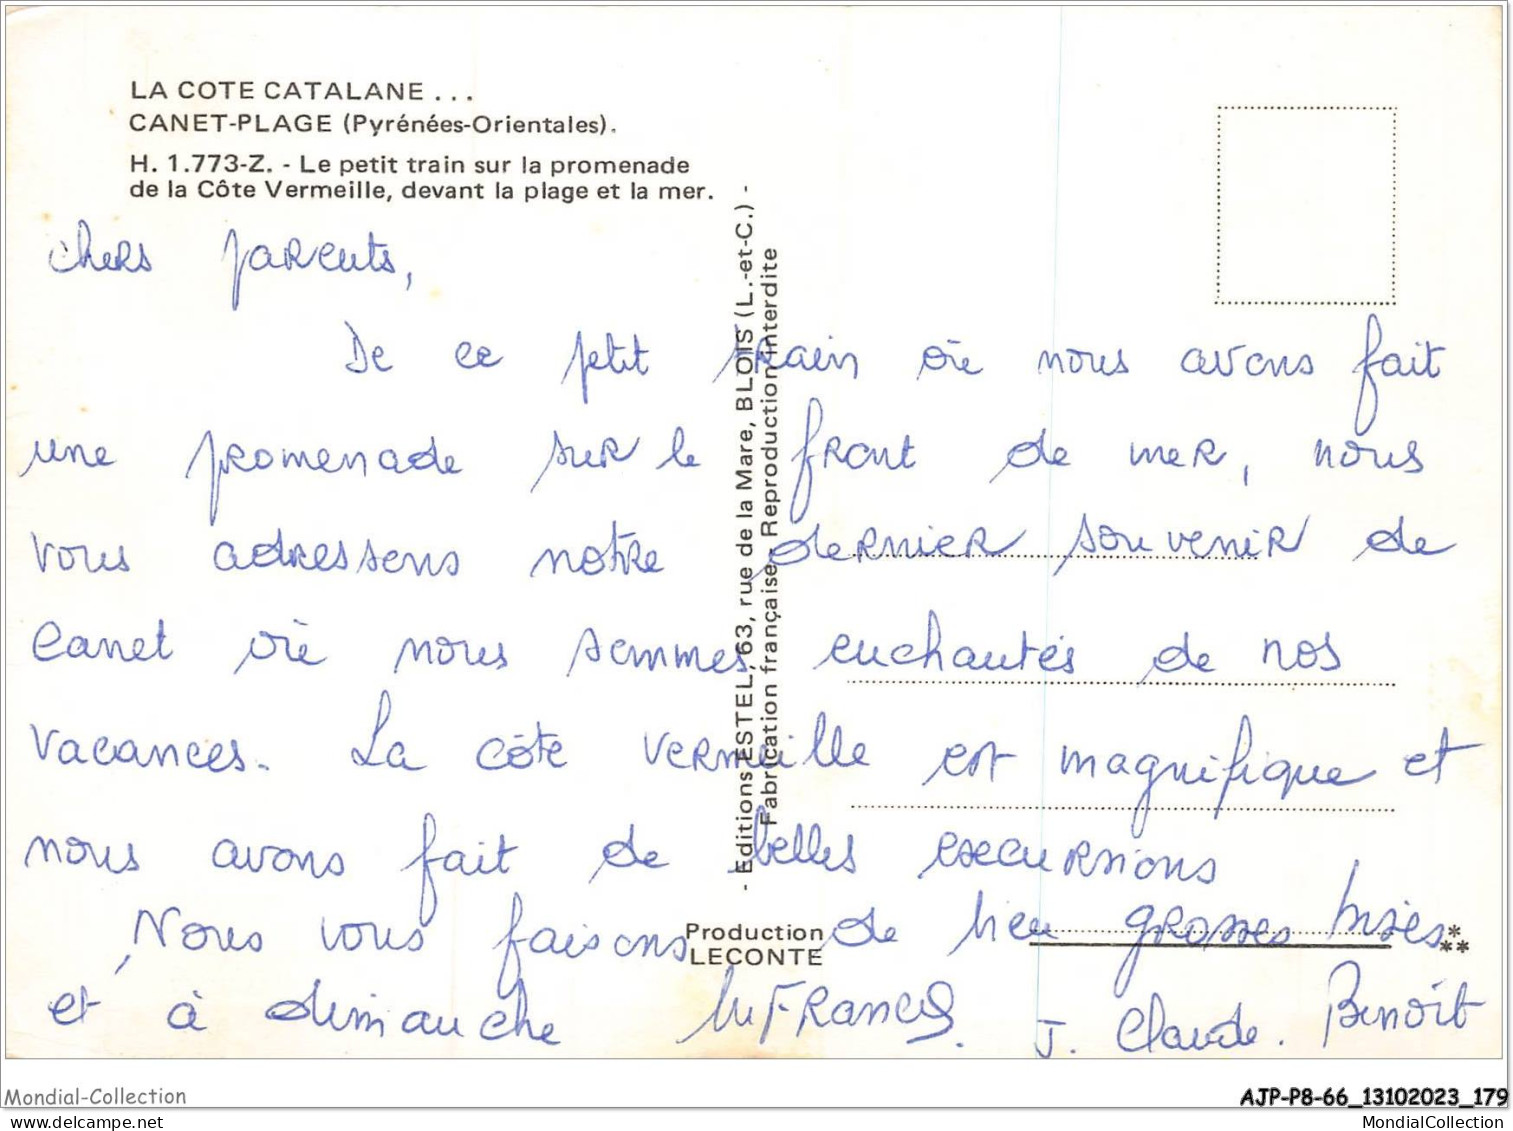 LA COTE CATALANE ...
CANET-PLAGE (Pyrénées-Orientales).
H. 1.773-Z. - Le petit train sur la promenade
de la Côte Vermeille, devant la plage et la mer.
chers parents,
De ce petit train où nous avons fait
une promenade sur le front de mer, nous
vous adressons notre dernier souvenir de
Canet où nous sommes enchantés de nos
vacances. La côte vermeille est magnifique et
nous avons fait de belles excursions
Nous vous faisons de bien grosses bises
et à dimanche
J. Claude. Benoît
- Editions ESTEL, 63, rue de la Mare, BLOIS (L.-et-C.) -
Fabrication française - Reproduction interdite
Production
LECONTE
*
**
Mondial-Collection
mondialcollection.net
AJP-P8-66_13102023_179
MondialCollection